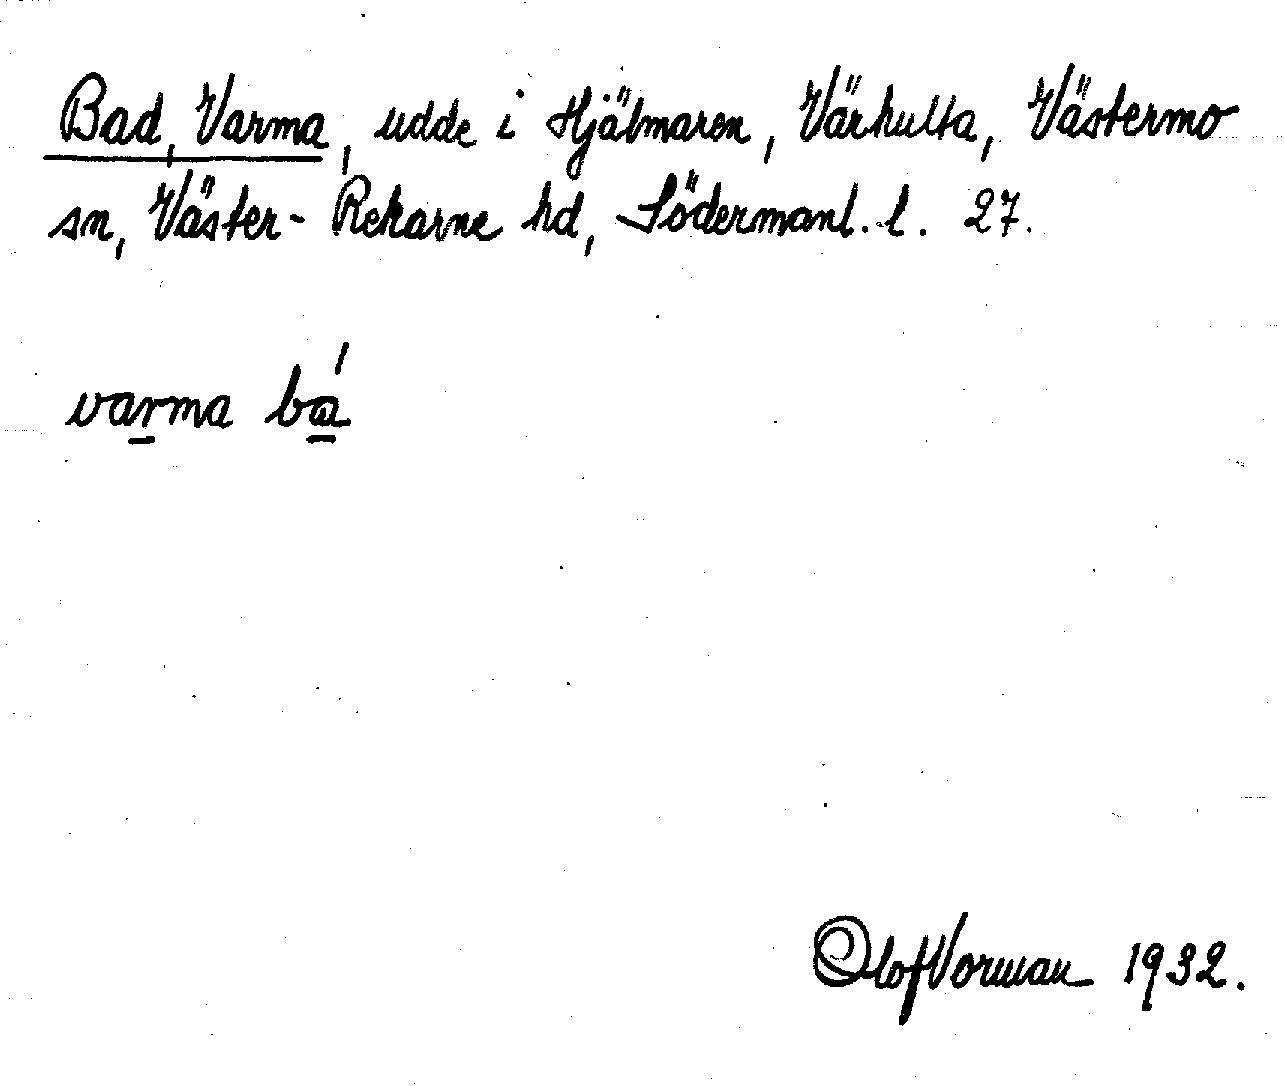 Bad, Varma, udde i Hjälmaren, Värhulta, Västermo
sn, Väster-Rekarne hd, Södermanl. l. 27.
varma bá
Olof Vorman 1932.